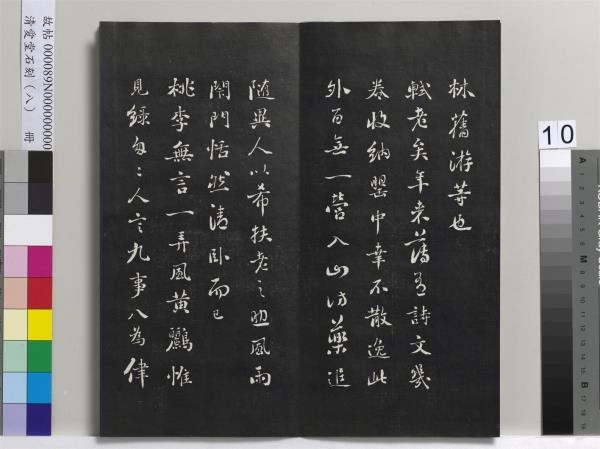 林舊游等也
軾老矣年来舊有詩文幾
卷收納罌中幸不散逸此
外百無一營入山訪藥追
隨異人以希扶老之迅風雨
閉門恬然清卧而已
桃李無言一弄風黄鸝惟
見緑匆々人言九事八為律
故帖 000089N000000000
清愛堂石刻(八) 冊
10